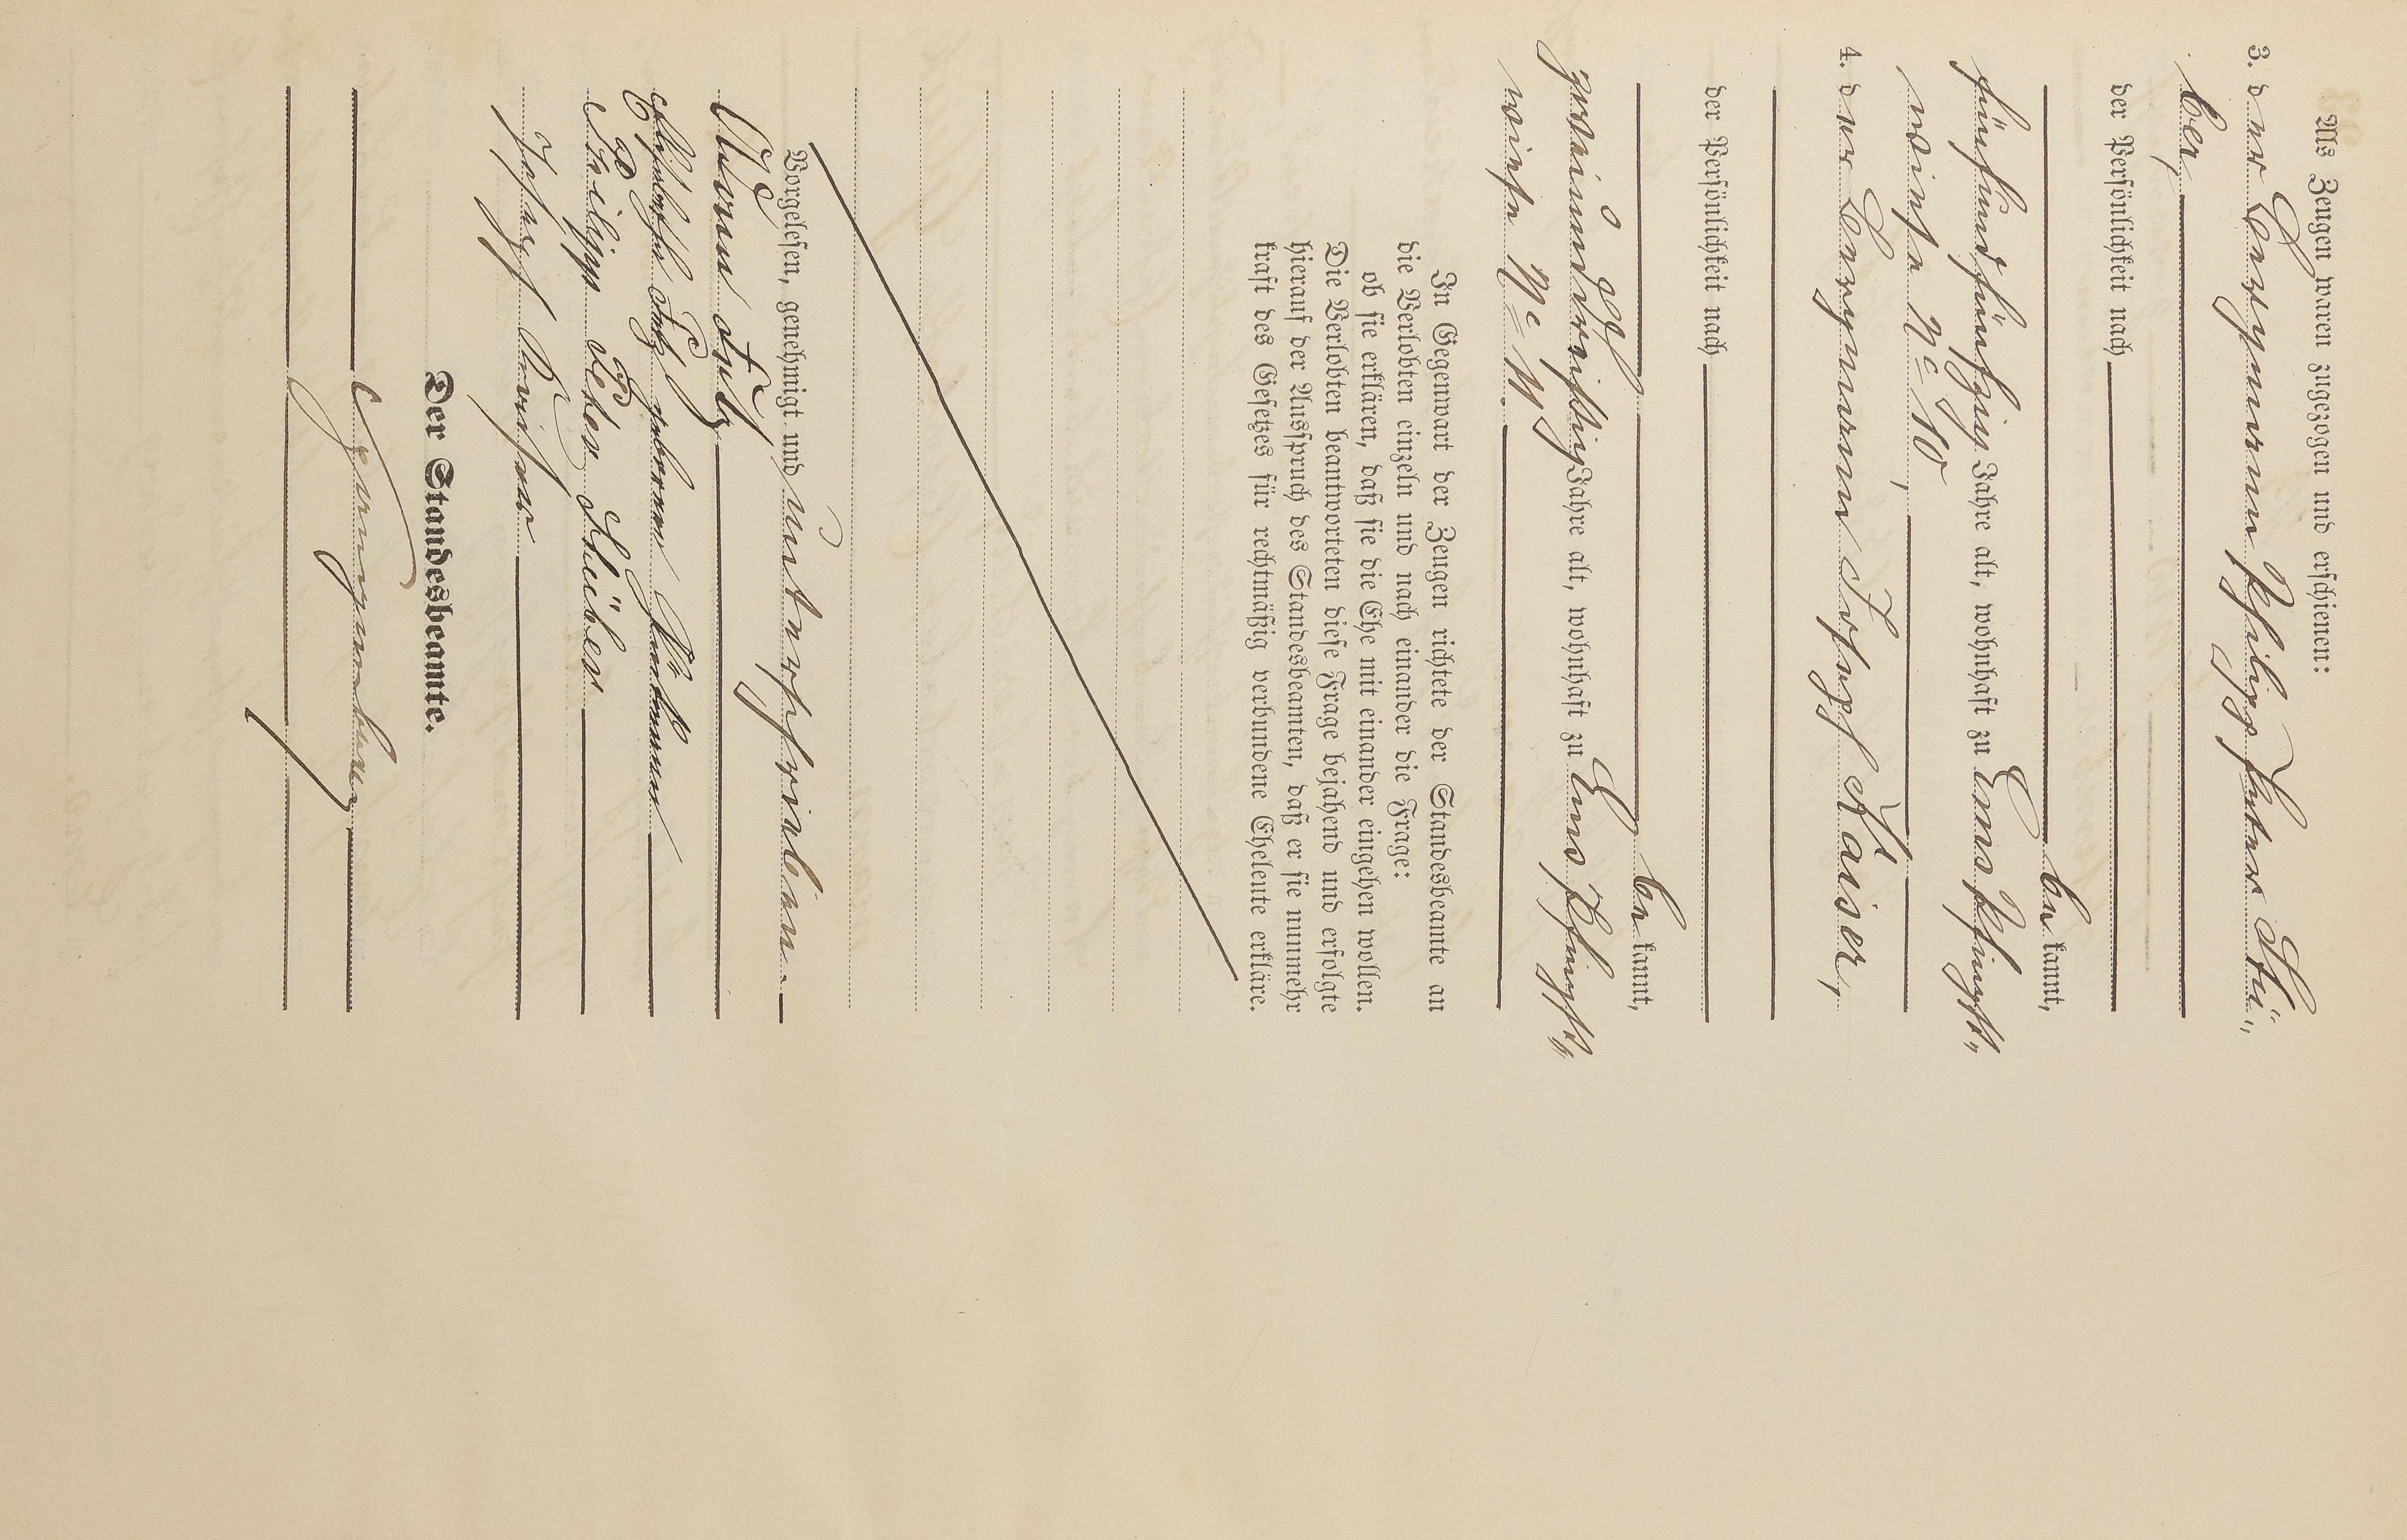 Als Zeugen waren zugezogen und erschienen:
3. der Bergmann Philipp Peter Stü„
ber,
der Persönlichkeit nach
be kannt,
fünfundfünfzig Jahre alt, wohnhaft zu Ems Pfingst„
wiese No 10,
4. der Bergmann Joseph Kaiser,
der Persönlichkeit nach
be kannt,
zweiunddreißig Jahre alt, wohnhaft zu Ems Pfingst„
wiese No 11.
In Gegenwart der Zeugen richtete der Standesbeamte an
die Verlobten einzeln und nach einander die Frage:
ob sie erklären, daß sie die Ehe mit einander eingehen wollen.
Die Verlobten beantworteten diese Frage bejahend und erfolgte
hierauf der Ausspruch des Standesbeamten, daß er sie nunmehr
kraft des Gesetzes für rechtmäßig verbundene Eheleute erkläre.
Vorgelesen, genehmigt und unterschrieben.
geborene
Philipp Peter Stüber
Joseph Kaiser
Der Standesbeamte.